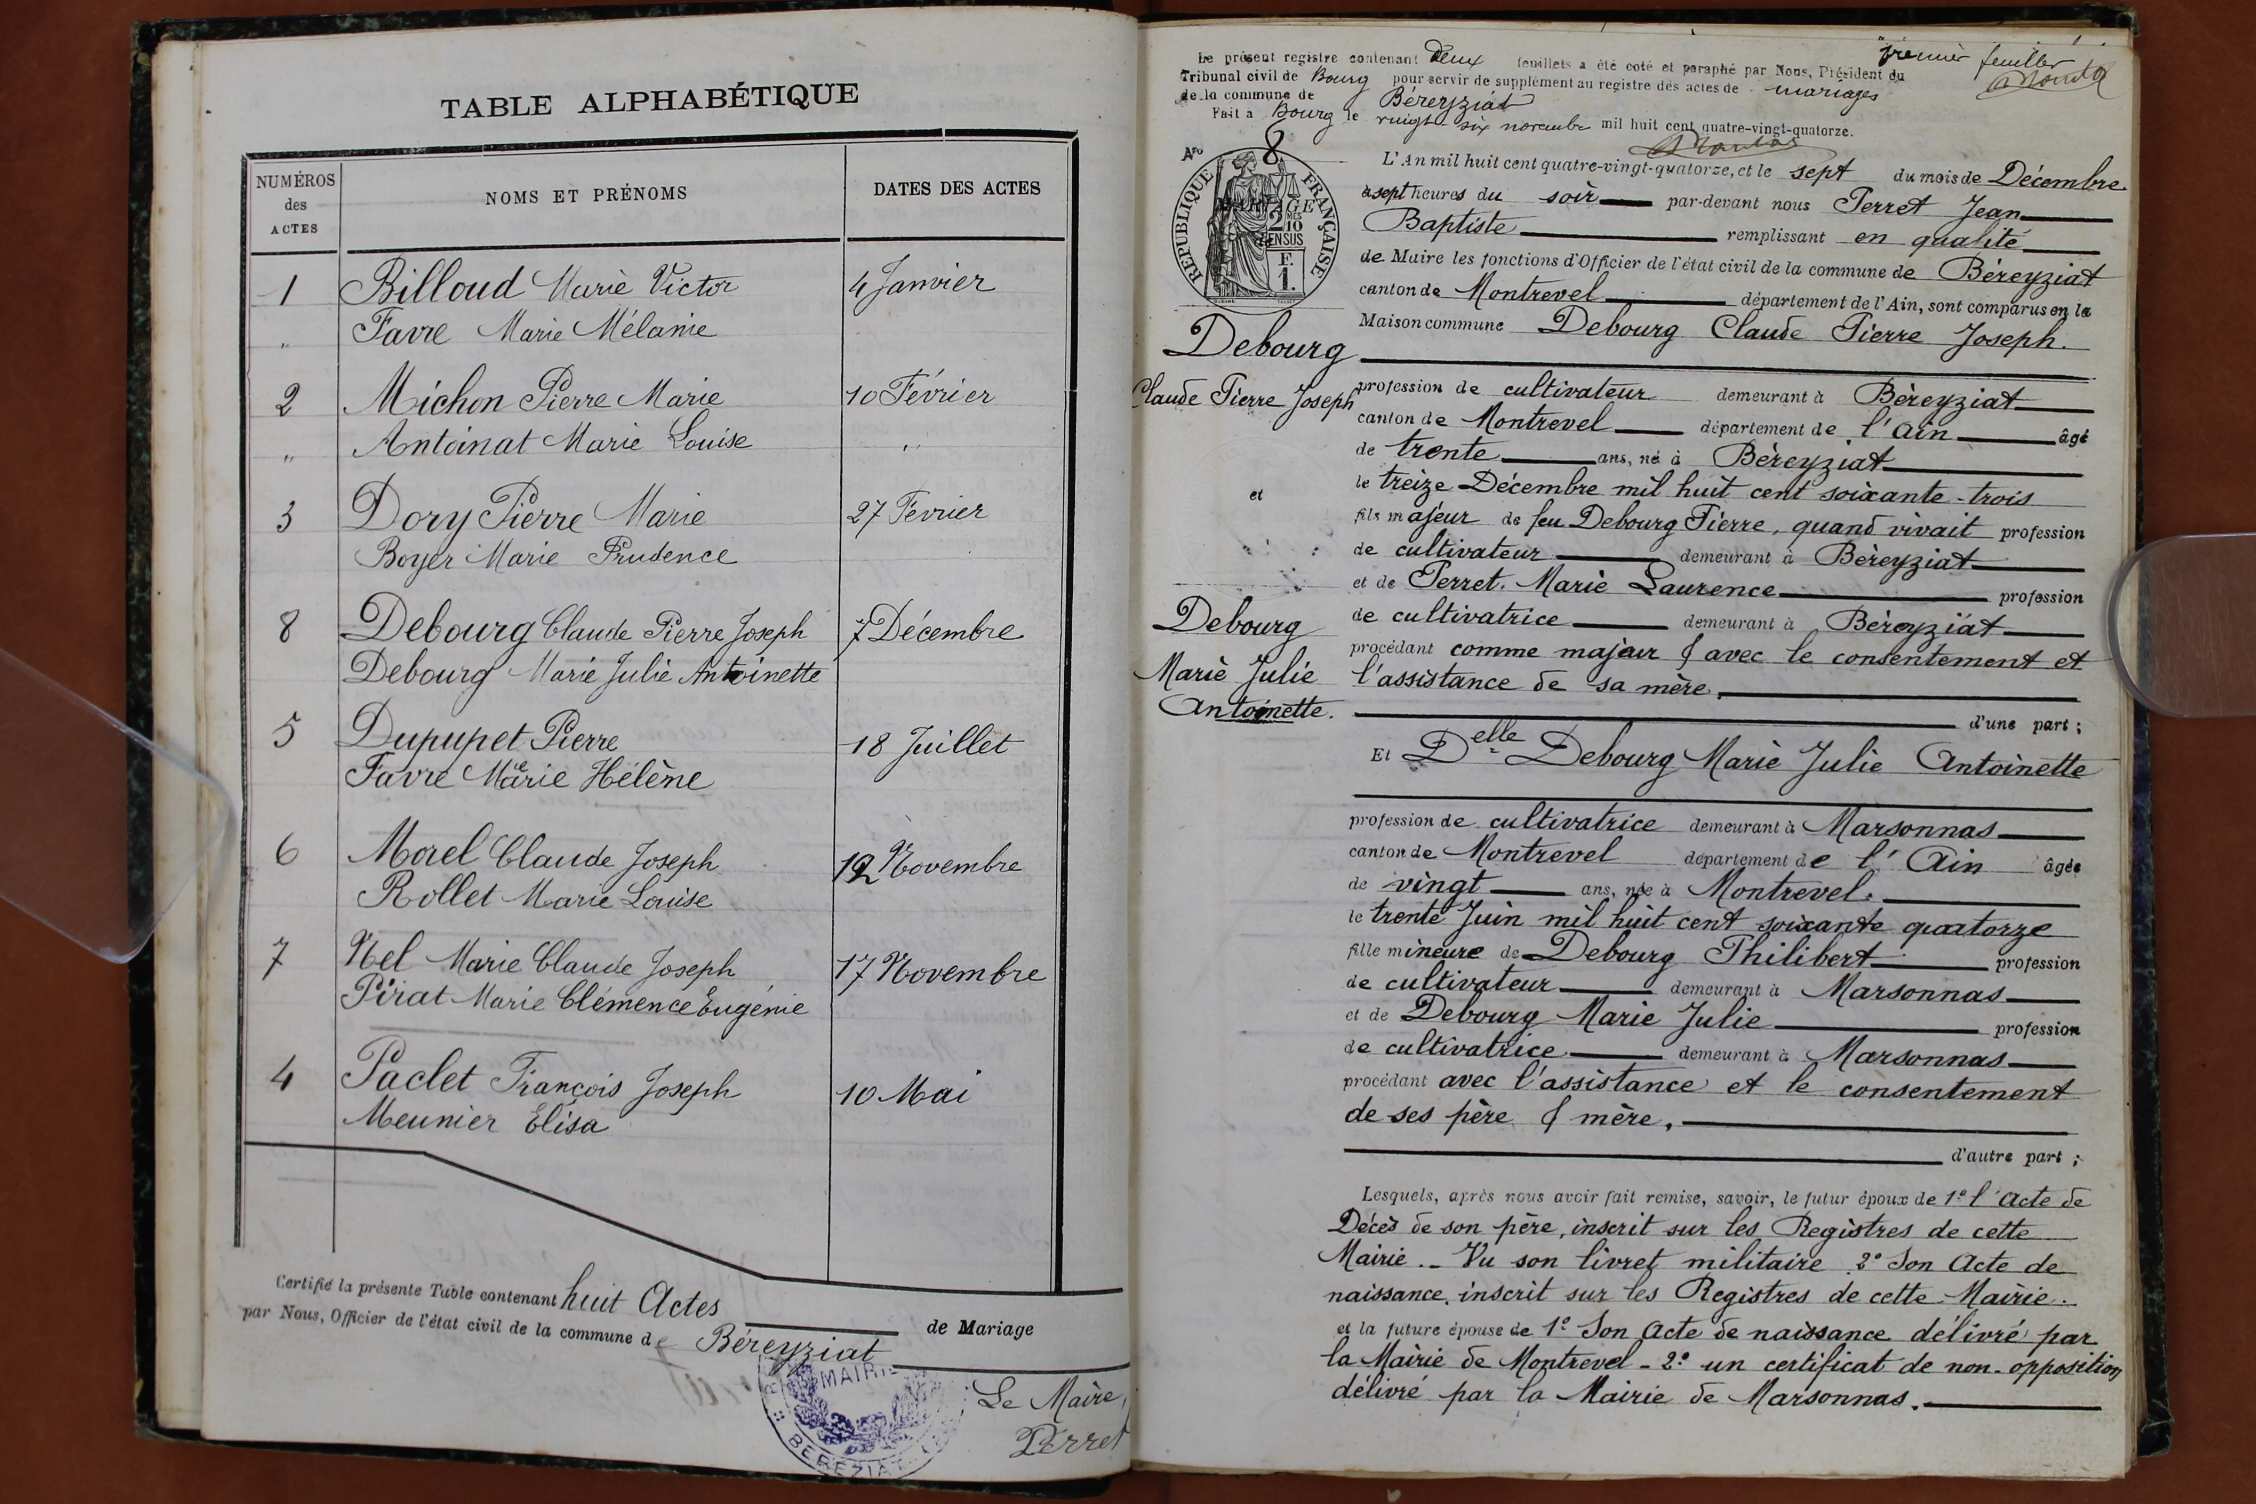 TABLE ALPHABÉTIQUE
NUMÉROS des ACTES
NOMS ET PRÉNOMS
DATES DES ACTES
1 Billoud Marie Victor 4 Janvier
" Favre Marie Mélanie
2 Michon Pierre Marie 10 Février
" Antoinat Marie Louise "
3 Dory Pierre Marie 27 Fevrier
Boyer Marie Prudence
8 Debourg Claude Pierre Joseph 7 Décembre
Debourg Marie Julie Antoinette
5 Dupupet Pierre 18 Juillet
Favre Marie Hélène
6 Morel Claude Joseph 12 Novembre
Rollet Marie Louise
7 Nel Marie Claude Joseph 17 Novembre
Pirat Marie Clémence Eugénie
4 Paclet François Joseph 10 Mai
Meunier Elisa
Certifié la présente Table contenant huit Actes de Mariage
par Nous, Officier de l'état civil de la commune de Béreyziat
MAIRIE
BÉRÉZIAT
Le Maire,
Perret
premier feuillet
Le présent registre contenant deux feuillets a été coté et paraphé par Nous, Président du
Tribunal civil de Bourg pour servir de supplément au registre des actes de mariages
de la commune de Béreyziat
Fait a Bourg le vingt-six novembre mil huit cent quatre-vingt-quatorze.
No 8
RÉPUBLIQUE FRANÇAISE
MARIAGE
2 MES 10
EN SUS
F.
1.
L'An mil huit cent quatre-vingt-quatorze, et le sept du mois de Décembre
à sept heures du soir par-devant nous Perret Jean
Baptiste remplissant en qualité
de Maire les fonctions d'Officier de l'état civil de la commune de Béreyziat
canton de Montrevel département de l'Ain, sont comparus en la
Maison commune Debourg Claude Pierre Joseph.
Debourg
Claude Pierre Joseph
et
Debourg
Marie Julie
Antoinette.
profession de cultivateur demeurant à Béreyziat
canton de Montrevel département de l'Ain âgé
de trente ans, né à Béreyziat
le treize Décembre mil huit cent soixante-trois
fils majeur de feu Debourg Pierre, quand vivait profession
de cultivateur demeurant à Béreyziat
et de Perret Marie Laurence profession
de cultivatrice demeurant à Béreyziat
procédant comme majeur & avec le consentement et
l'assistance de sa mère.
d'une part ;
Et Delle Debourg Marie Julie Antoinette
profession de cultivatrice demeurant à Marsonnas
canton de Montrevel département de l'Ain âgée
de vingt ans, née à Montrevel.
le trente Juin mil huit cent soixante quatorze
fille mineure de Debourg Philibert profession
de cultivateur demeurant à Marsonnas
et de Debourg Marie Julie profession
de cultivatrice demeurant à Marsonnas
procédant avec l'assistance et le consentement
de ses père & mère.
d'autre part ;
Lesquels, après nous avoir fait remise, savoir, le futur époux de 1º l'Acte de
Décès de son père, inscrit sur les Registres de cette
Mairie. - Vu son livret militaire 2º Son Acte de
naissance, inscrit sur les Registres de cette Mairie.
et la future épouse de 1º Son Acte de naissance délivré par
la Mairie de Montrevel - 2º un certificat de non-opposition
délivré par la Mairie de Marsonnas.